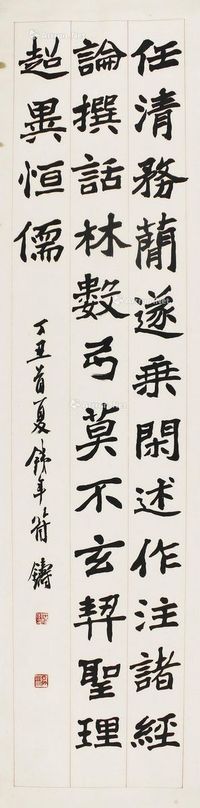 任清務蕳遂乗閑述作注諸經
論撰話林數弓莫不玄契聖理
超異恒儒
丁丑首夏鐵年符鑄